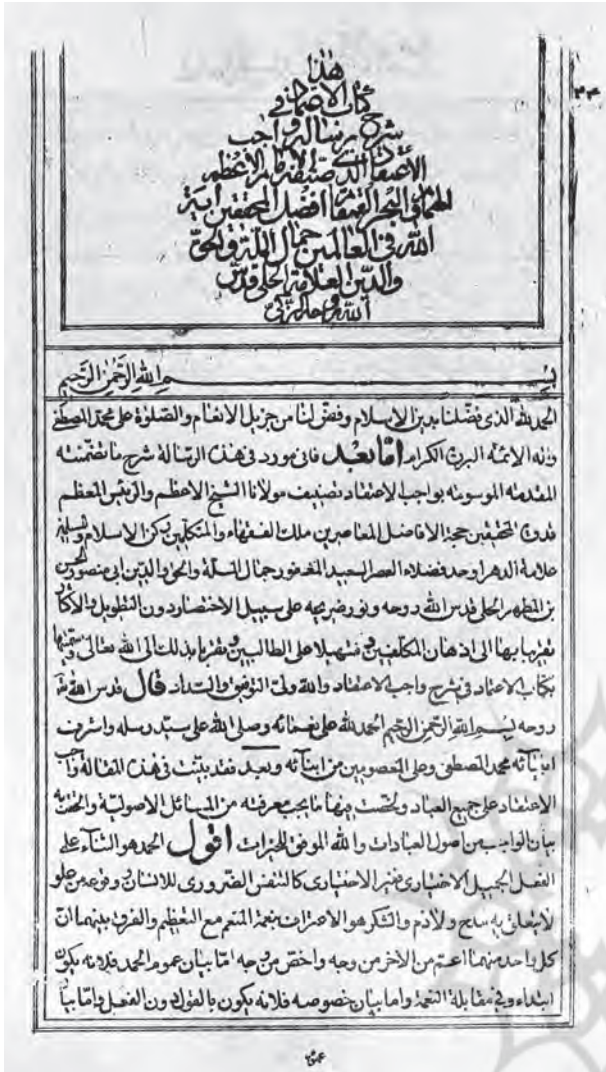 هذا
كتاب الاعتماد في
شرح رسالة واجب
الاعتقاد الذي صنفه الامام الاعظم
الهمام البحر القمقام افضل المحققين آية
الله في العالمين جمال الملة والحق
والدين العلامة الحلي قدس
الله روحه الزكي
بسم الله الرحمن الرحيم
الحمد لله الذي فضلنا بدين الاسلام وفضلنا من جزيل الانعام والصلوة على محمد المصطفى
وآله الائمة البررة الكرام اما بعد فاني مورد في هذه الرسالة شرح ما تضمنته
المقدمة الموسومة بواجب الاعتقاد تصنيف مولانا الشيخ الاعظم والرئيس المعظم
قدوة المحققين حجة الافاضل المعاصرين ملك الفقهاء والمتكلمين ركن الاسلام والمسلمين
علامة الدهر اوحد فضلاء العصر السعيد المغفور جمال الملة والحق والدين ابي منصور الحسن
بن المطهر الحلي قدس الله روحه ونور ضريحه على سبيل الاختصار دون التطويل والاكثار
تقريبا بها الى اذهان المكلفين وتسهيلا على الطالبين وتقربا بذلك الى الله تعالى وسميتها
بكتاب الاعتماد في شرح واجب الاعتقاد والله ولي التوفيق والسداد قال قدس الله
روحه بسم الله الرحمن الرحيم الحمد لله على نعمائه وصلى الله على سيد رسله واشرف
انبيائه محمد المصطفى وعلى المعصومين من ابنائه وبعد فقد بينت في هذه المقالة واجب
الاعتقاد على جميع العباد ولخصت فيها ما يجب معرفته من المسائل الاصولية والحقت به
بيان الواجب من اصول العبادات والله الموفق للخيرات اقول الحمد هو الثناء على
الفعل الجميل الاختياري فغير الاختياري كالتنفس الضروري للانسان ووقوعه من علو
لا يتعلق به مدح ولا ذم والشكر هو الاعتراف بنعمة المنعم مع التعظيم والفرق بينهما ان
كل واحد منهما اعم من الآخر من وجه واخص من وجه اما بيان عموم الحمد فلانه يكون
ابتداء وفي مقابلة النعمة واما بيان خصوصه فلانه يكون بالقول دون الفعل واما بيان